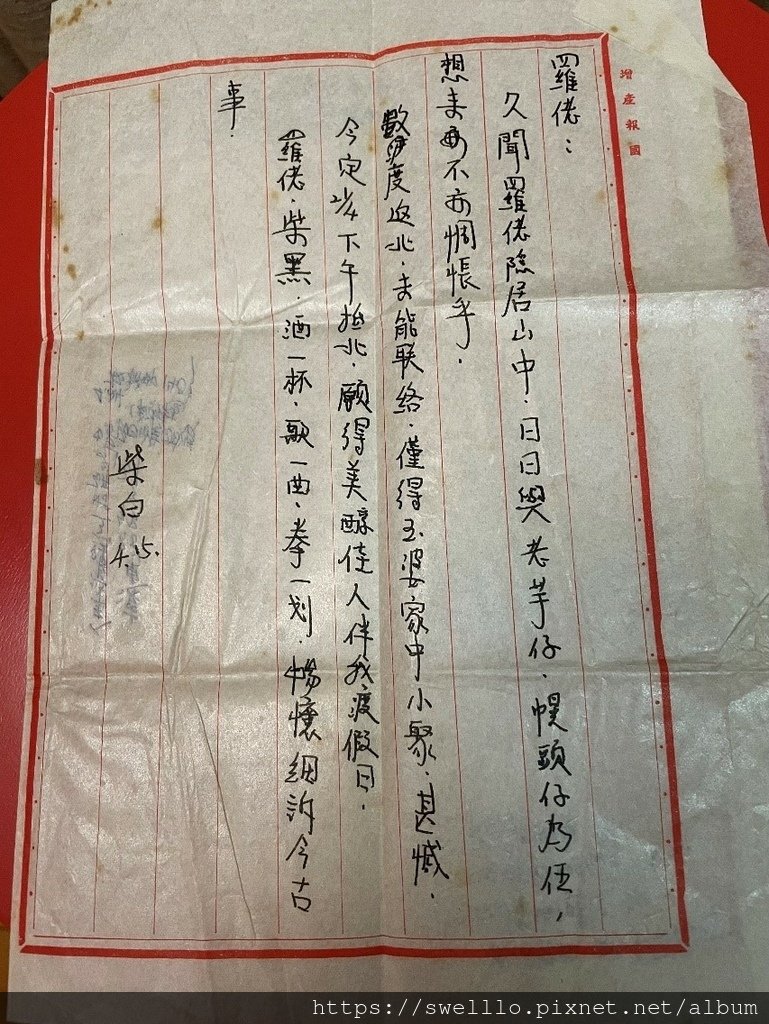 增產報國
羅佬：
久聞羅佬隐居山中．日日與老芋仔．幔頭仔為伍，
想來毋不亦惆悵乎．
數度返北．未能联絡．僅得玉婆家中小聚．甚憾．
今定 下午抵北．願得美醇佳人伴我渡假日．
羅佬．柴黑．酒一杯．歌一曲．拳一划．暢懷細訴今古
事．
柴白
4.15.
https://swelllo.pixnet.net/album